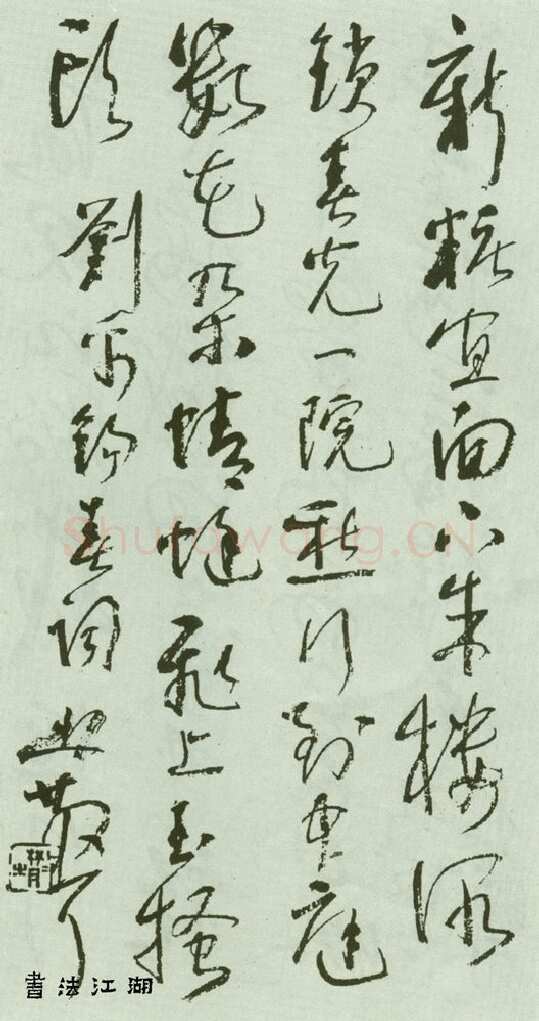 新粧宜面下朱樓深
鎖春光一院愁行到中庭
數花朵蜻蜓飛上玉搔
頭 劉禹錫春詞 散耳
Shufawang.CN
書法江湖